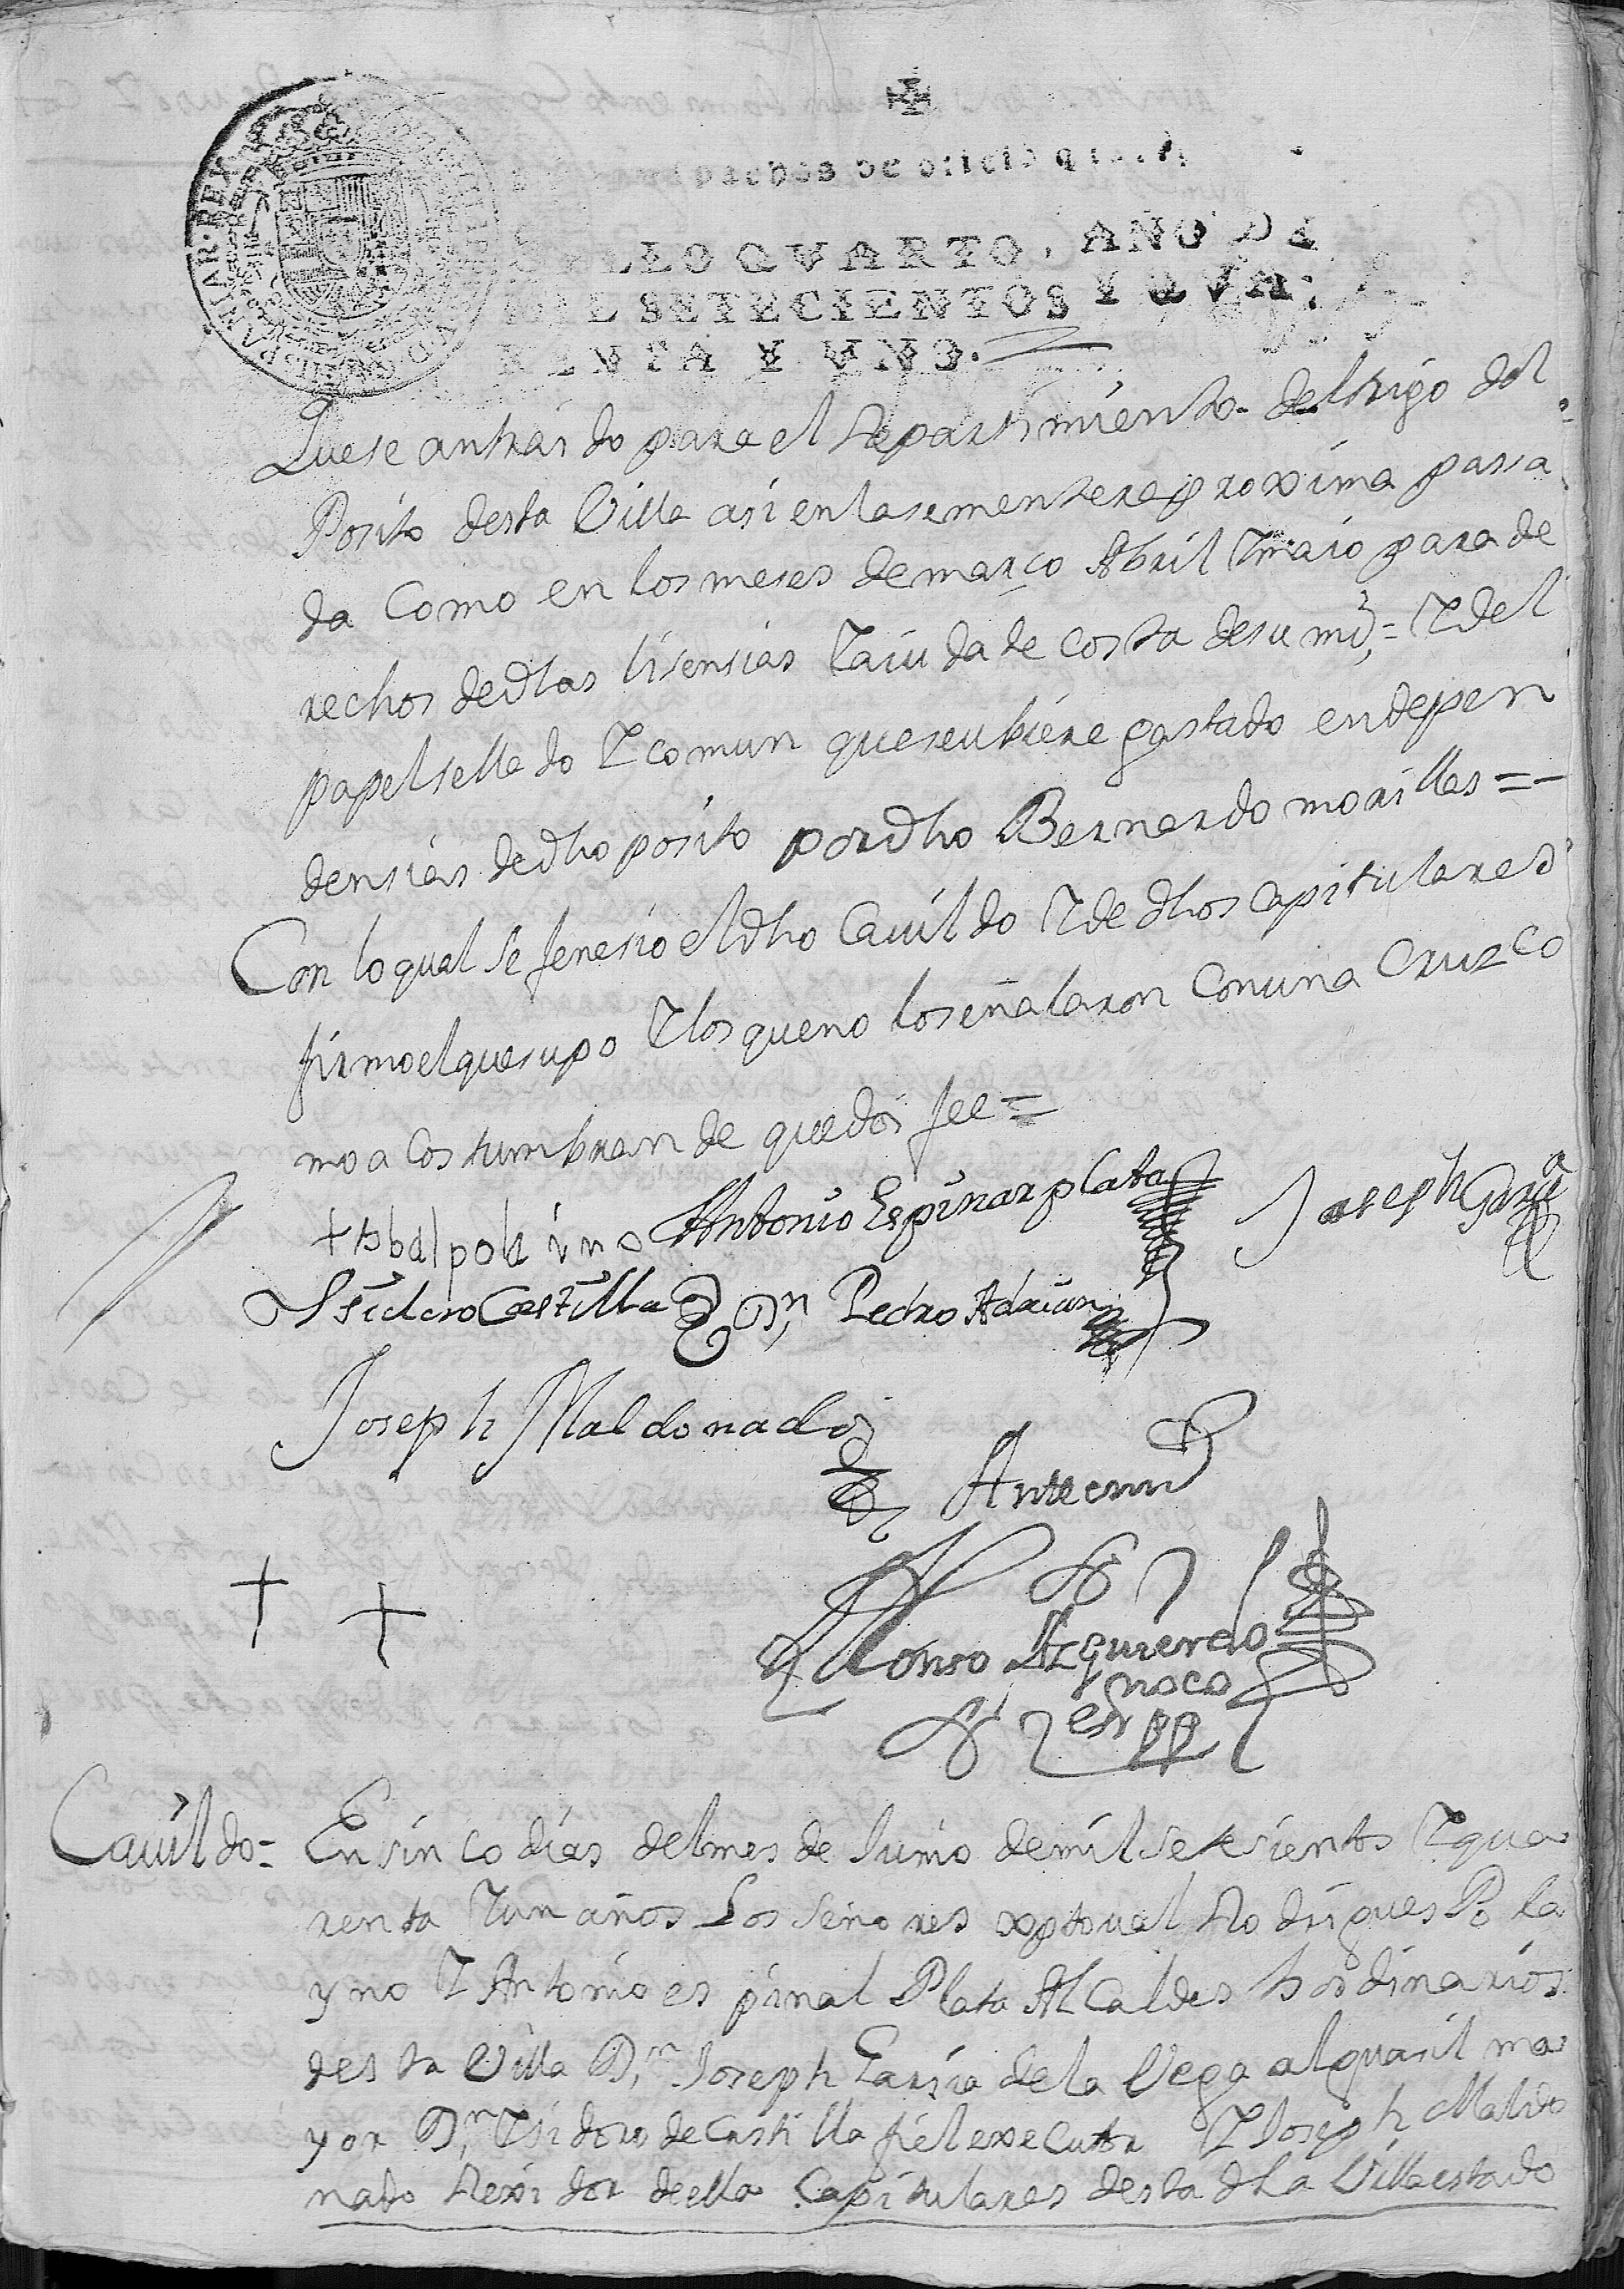 despachos de oficio
SELLO QVARTO, AÑO DE
MIL SETECIENTOS Y QVA,
RENTA Y VNO.
Que se an traido para el repartimiento del trigo del
Posito desta Villa asi en la sementera proxima passa
da Como en los meses de março Abril Y maio para de
rechos de dhas lisensias Y aiuda de costa de su md, = Y del
papel sellado Y comun que se ubiere gastado en depen
densias de dho posito por dho Bernardo morillas =-
Con lo qual se fenesio el dho Cavildo Y de dhos capitulares
firmo el que supo Y los que no lo señalaron Con una Cruz co
mo acostumbran de que doi fee =
Antonio Espinar plata Joseph Garzia
Isidoro Castilla Dn, Pedro Adrian
Joseph Maldonado
Ante mi
Alonso Izquierdo
roco
esn pp
Cavildo = En sinco dias del mes de Junio de mil setesientos Y qua
renta Y un años Los señores xptoual Rodrigues Po la
yno Y Antonio espinal Plata Alcaldes hordinarios
desta Villa Dn, Joseph Garsia de la Vega alguasil ma
yor Dn, Ysidoro de Castilla fiel executor Y Joseph Maldo
nado Rexidor de ella Capitulares desta dha Villa estado